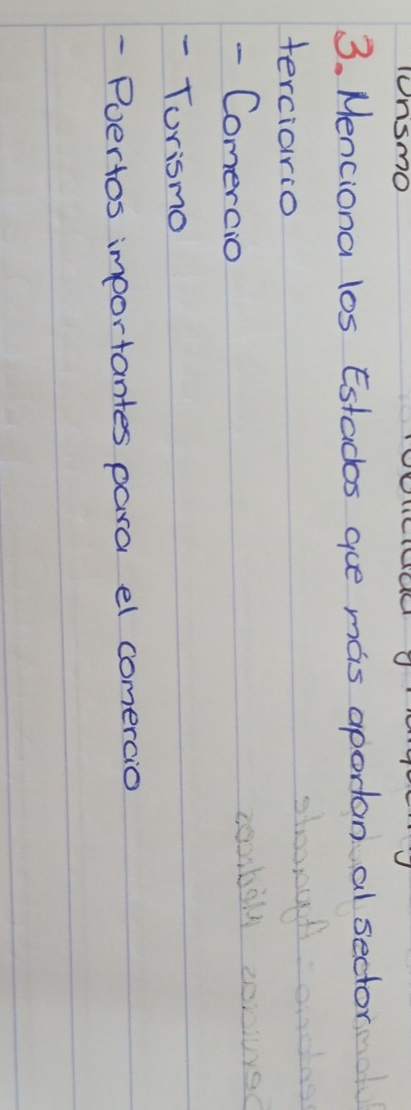 3. Menciona los Estados que más aportan al sector
terciario
- Comercio
- Turismo
- Puertos importantes para el comercio